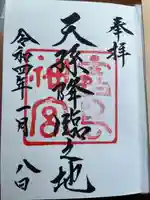 奉拝
天孫降臨之地
令和四年一月八日